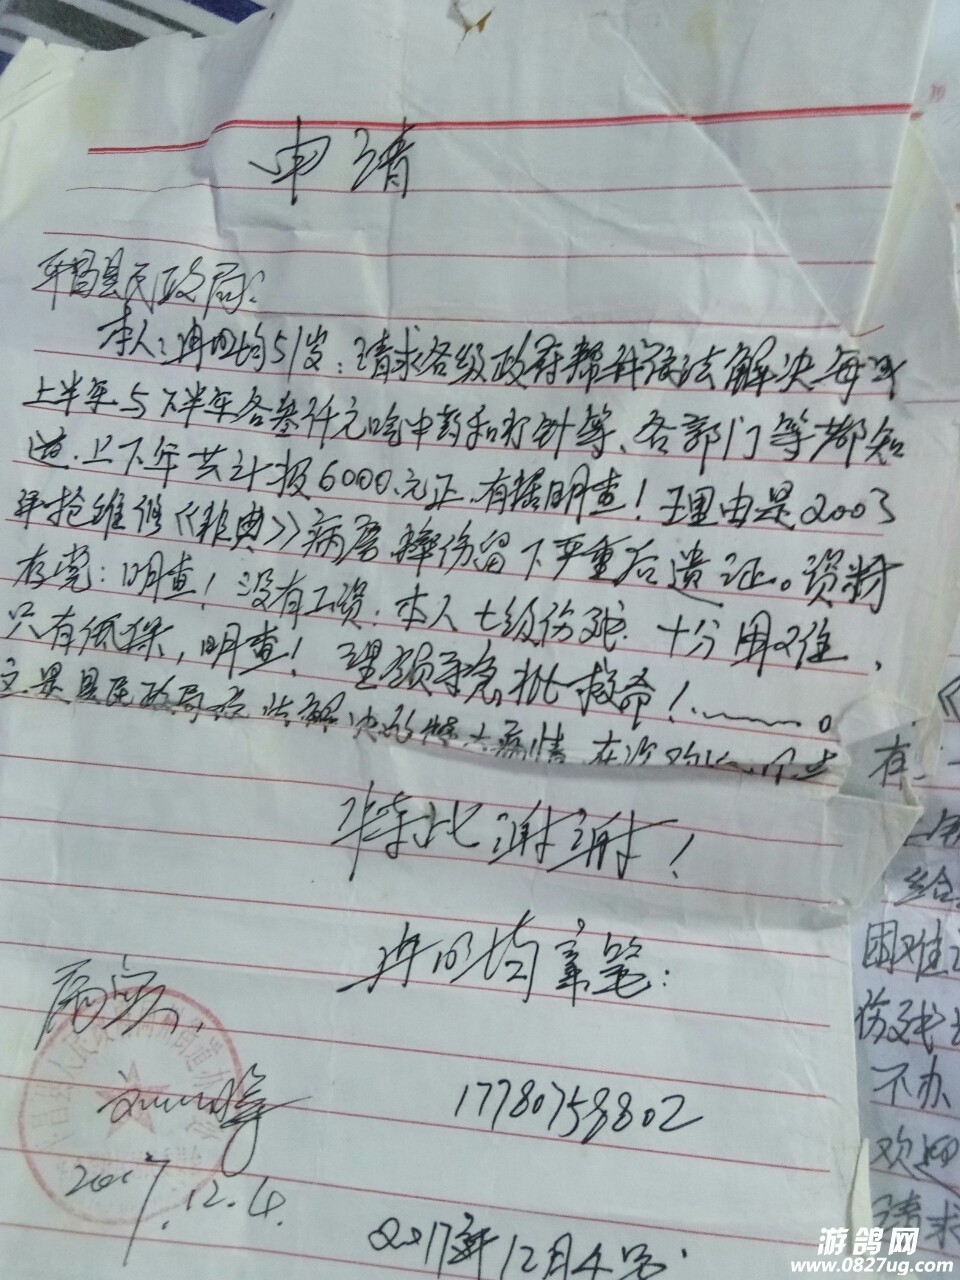 申请
平昌县民政局:
本人:冉四均51岁:请求各级政府帮我设法解决每次
上半年与下半年各叁仟元吃中药和打针等、各部门等都知
道.上下年共计报6000.元正.有据明查!理由是2003
年抢维修《非典》病房摔伤留下严重后遗证。资料
存党:明查!没有工资.本人七级伤残.十分困难,
只有低保,明查!望领导急批救命!……。
特此谢谢!
冉四均亲笔:
属实,
17780758802
2017.12.4.
2017年12月4号.
有
给
困难
伤残
不办
欢迎
请求
游鸽网
www.0827ug.com